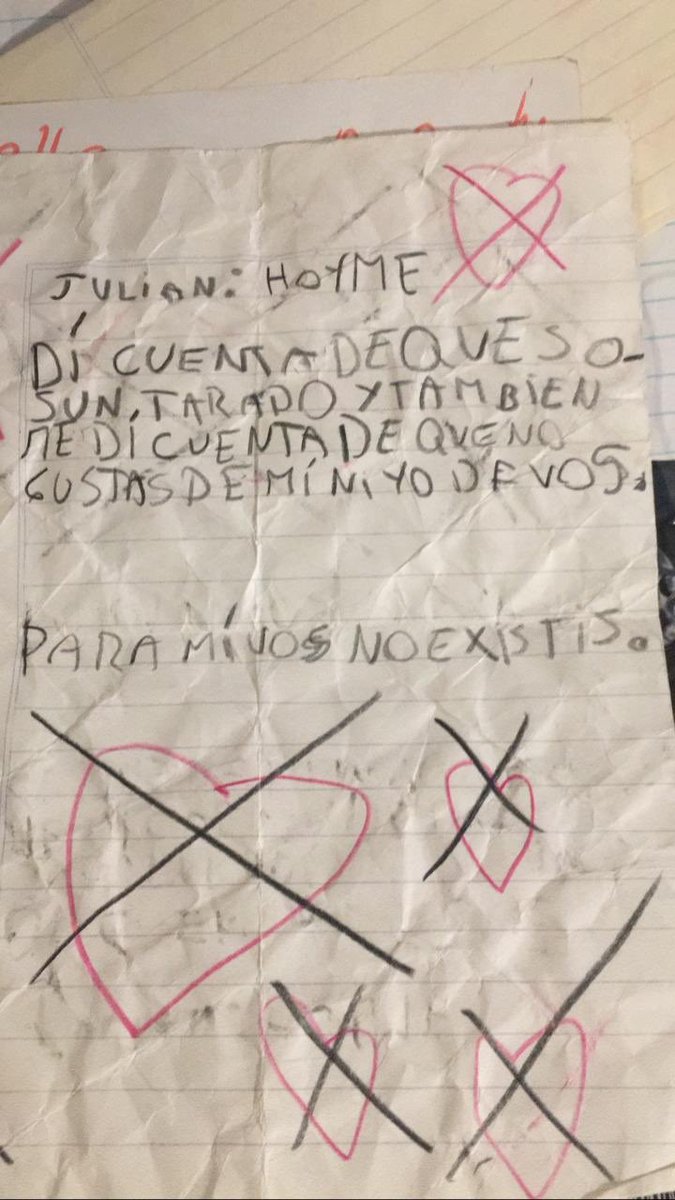 JULiAN: HOYME
DÍ CUENTA DE QUE SO-
SUN, TARADO Y TAMBiEN
ME DÍ CUENTA DE QUE NO
GUSTAS DE MÍ Ni YO DE VOS.
PARA MÍ VOS NO EXiSTiS.